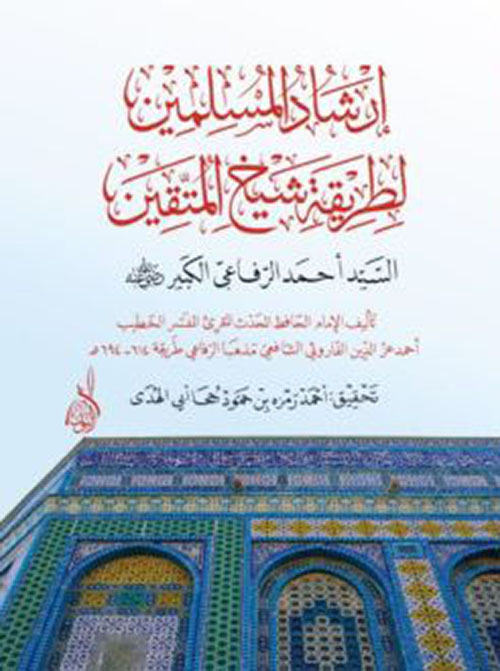 إرشاد المسلمين
لطريقة شيخ المتقين
السيد أحمد الرفاعي الكبير رضي الله عنه
تأليف الإمام الحافظ المحدث المقرئ المفسر الخطيب
أحمد عز الدين الفاروثي الشافعي مذهبا الرفاعي طريقة ٦١٤ - ٦٩٤ هـ
تحقيق: أحمد رمزه بن حمود جحا أبي الهدى